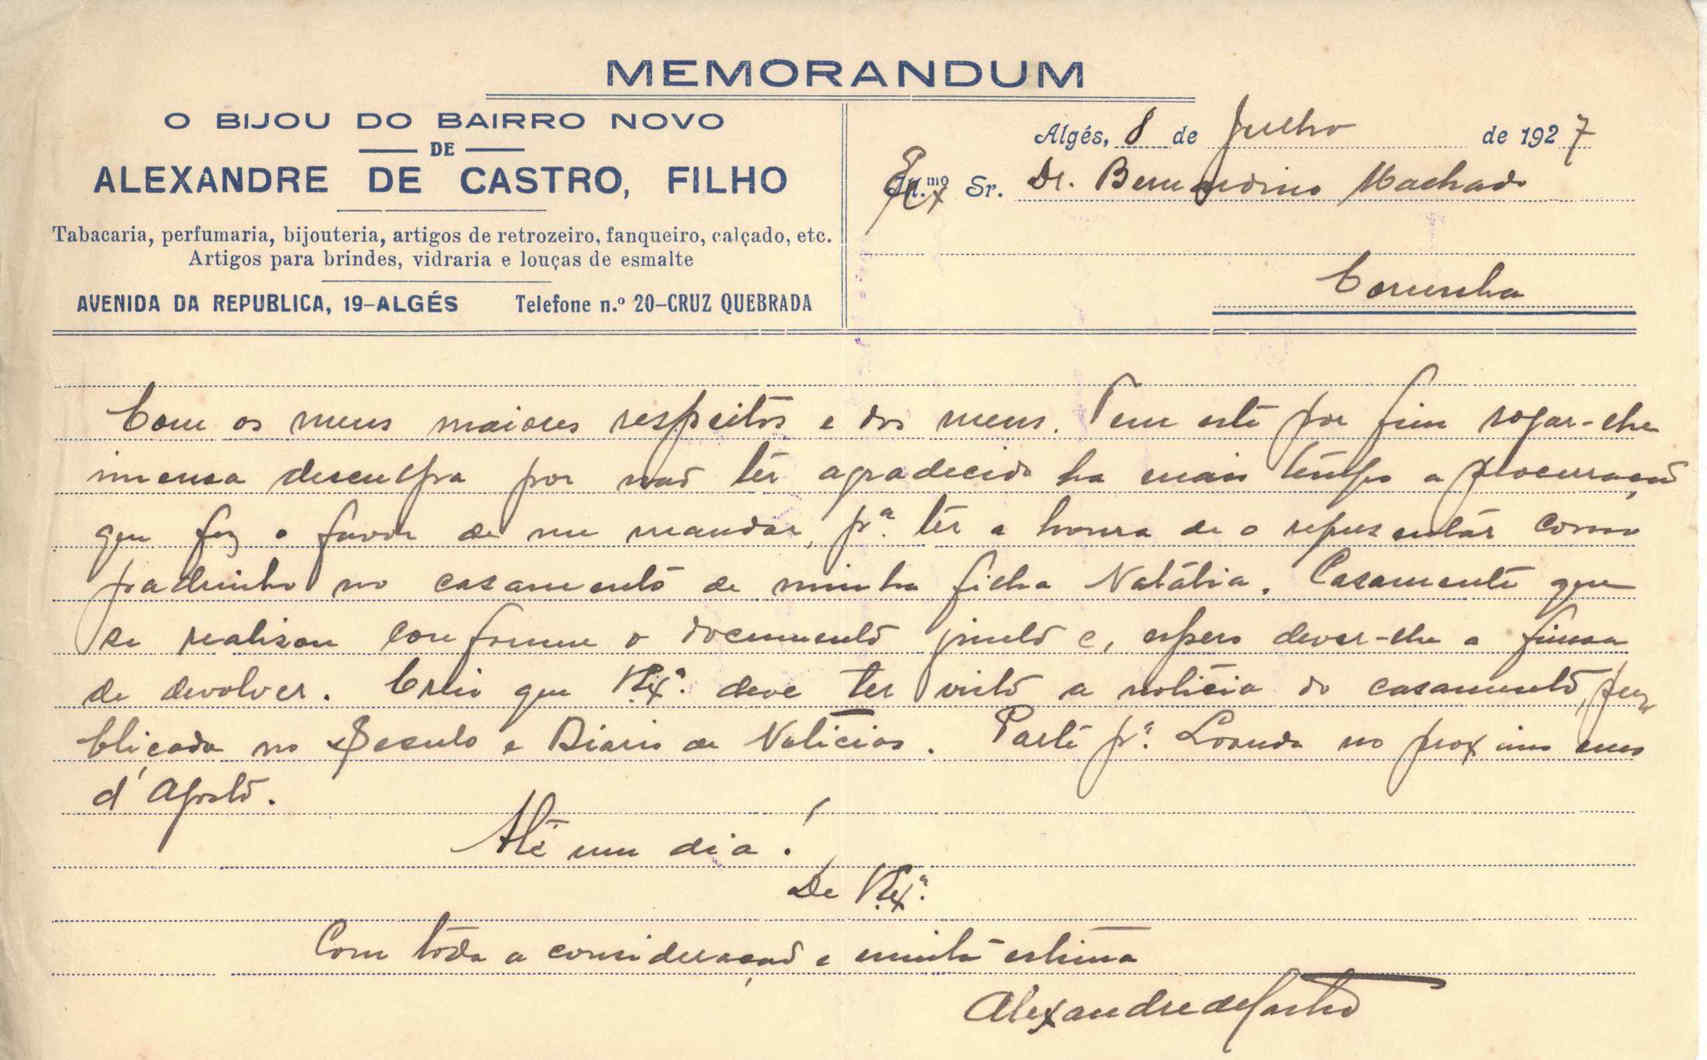 MEMORANDUM
O BIJOU DO BAIRRO NOVO
DE
ALEXANDRE DE CASTRO, FILHO
Tabacaria, perfumaria, bijouteria, artigos de retrozeiro, fanqueiro, calçado, etc.
Artigos para brindes, vidraria e louças de esmalte
AVENIDA DA REPUBLICA, 19-ALGÉS Telefone n.º 20-CRUZ QUEBRADA
Algés, 8 de Julho de 1927
Ex.mo Sr. Dr. Bernardino Machado
Corunha
Com os meus maiores respeitos e dos meus. Tem este por fim rogar-lhe
imensa desculpa por não ter agradecido ha mais tempo a procuração
que fez o favor de me mandar, p.ª ter a honra de o representár como
padrinho no casamento de minha filha Natália. Casamento que
se realisou conforme o documento junto e, espero dever-lhe a finesa
de devolver. Creio que V. Ex.ª deve ter visto a noticia do casamento, pu-
blicada no Seculo e Diario de Noticias. Parte p.ª Loanda no proximo mes
d'Agosto.
Até um dia!
De V. Ex.ª
Com toda a consideração e muita estima
Alexandre de Castro